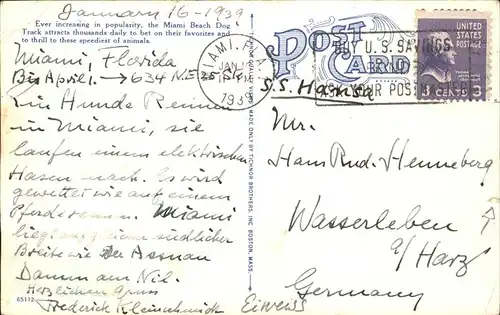 January 16-1939
Ever increasing in popularity, the Miami Beach Dog
Track attracts thousands daily to bet on their favorites and
to thrill to these speediest of animals.
Miami, Florida
Bis April → 634 N.E.
Ein Hunde Rennen
in Miami, sie
laufen einem elektrischen
Hasen nach. Es wird
gewettet wie auf einem
Pferderennen. Miami
liegt südlicher
Breite wie der Assuan
Damm am Nil.
Herzlichen Gruss
Frederick Kleinschmidt
65112
MADE ONLY BY TICHNOR BROTHERS, INC. BOSTON, MASS.
POST CARD
MIAMI, FLA.
JAN
1939
BUY U.S. SAVINGS
ASK YOUR POSTMASTER
UNITED
STATES
POSTAGE
3 CENTS 3
S.S. Hansa
Mr.
Hans Rud. Henneberg
Wasserleben
a/Harz
Germany
Eiweiss